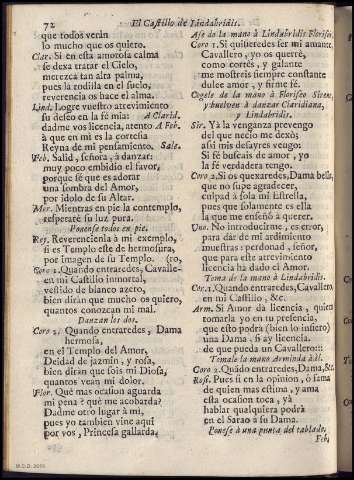 72
El Castillo de Lindabridis.
que todos verán
lo mucho que os quiero.
Clar. Si en esta amorosa calma
se dexa tratar el Cielo,
merezca tan alta palma,
pues la rodilla en el suelo,
reverencia os hace el alma.
Lind. Logre vuestro atrevimiento
su deseo en la fé mia: A Clarid.
dadme vos licencia, atento A Feb.
à que en mi es la cortesia
Reyna de mi pensamiento. Sale.
Feb. Salid, señora, à danzar:
muy poco embidio el favor,
porque sé que es adorar
una sombra del Amor,
por idolo de su Altar.
Mer. Mientras en pie la contemplo,
respetaré su luz pura.
Ponense todos en pie.
Rey. Reverencienla à mi exemplo,
si es Templo este de hermosura,
por imagen de su Templo. (ro,
Coro 1. Quando entraredes, Cavalle-
en mi Castillo inmortal,
vestido de blanco azero,
bien dirán que mucho os quiero,
quantos conozcan mi mal.
Danzan los dos.
Coro 2. Quando entraredes, Dama
hermosa,
en el Templo del Amor,
Deidad de jazmin, y rosa,
bien dirán que sois mi Diosa,
quantos vean mi dolor.
Flor. Què mas ocasion aguarda
mi pena? què me acobarda?
Dadme otro lugar à mi,
pues yo tambien vine aqui
por vos, Princesa gallarda.
Ase de la mano à Lindabridis Floriseo.
Coro 1. Si quisieredes ser mi amante,
Cavallero, yo os querré,
como cortés, y galante
me mostreis siempre constante
dulce amor, y firme fé.
Cogele de la mano à Floriseo Sirene,
y buelven à danzar Claridiana,
y Lindabridis.
Sir. Yà la venganza prevengo
del que necio me dexò;
asi mis desayres vengo:
Si fé buscais de amor, yo
la fé verdadera tengo.
Coro 2. Si os quexaredes, Dama bella,
que no supe agradecer,
culpad à sola mi Estrella,
pues que solamente es ella
la que me enseñó à querer.
Uno. No introducirme, es error,
para dar de mi ardimiento
muestras: perdonad, señor,
que para este atrevimiento
licencia ha dado el Amor.
Toma de la mano à Lindabridis.
Cor. 1. Quando entraredes, Cavallero
en mi Castillo, &c.
Arm. Si Amor da licencia, quien
tomarla yo en tu presencia,
que esto podrá (bien lo infiero)
una Dama, si ay licencia.
de que pueda un Cavallero:::
Tomale la mano Arminda à èl.
Coro 2. Quãdo entraredes, Dama, &c.
Ros. Pues si en la opinion, ò fama
de quien mas estima, y ama
esta ocasion toca, yà
hablar qualquiera podrá
en el Sarao à su Dama.
Ponese à una punta del tablado.
Feb.